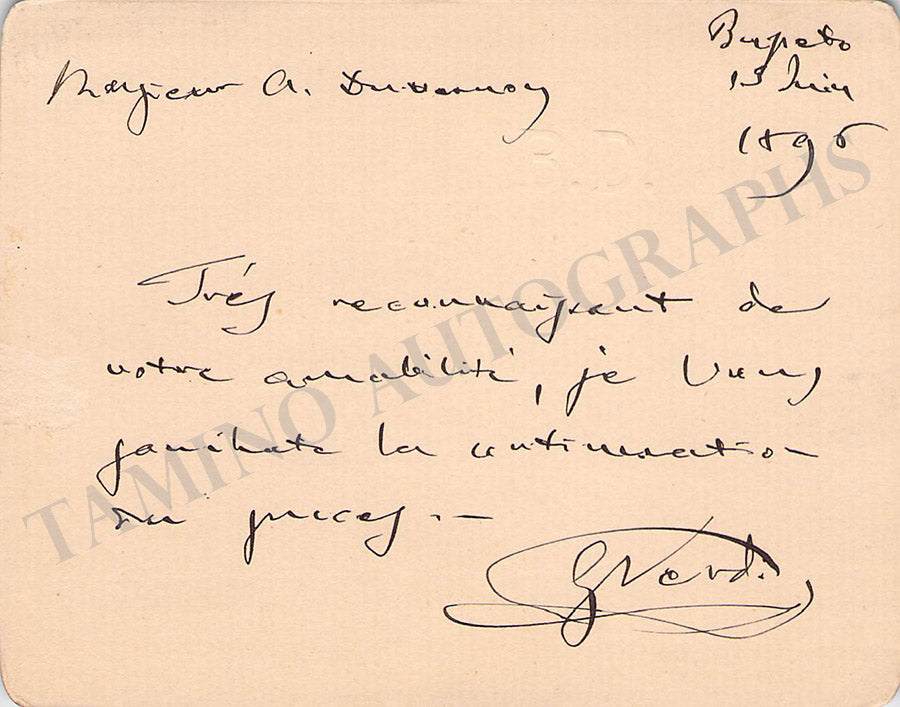 Busseto
13 Juin
1896
Monsieur A. Duvernoy
B.D.
Très reconnaissant de
votre amabilité, je vous
souhaite la continuation
du succes. —
G Verdi
TAMINO AUTOGRAPHS